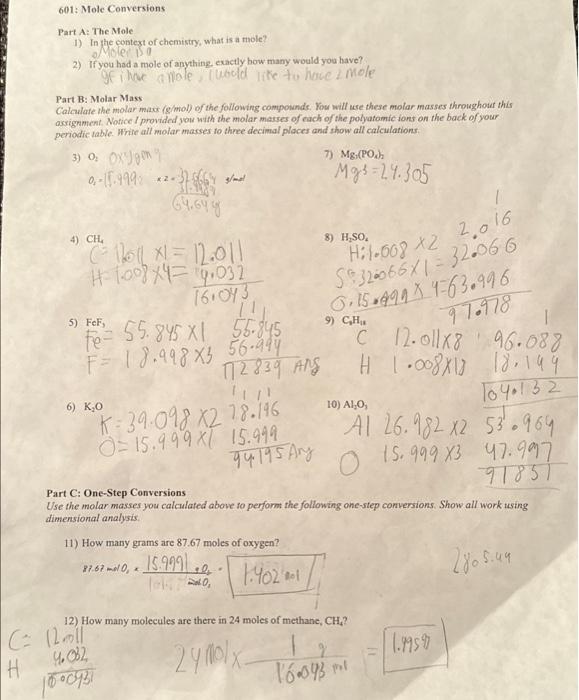 601: Mole Conversions
Part A: The Mole
1) In the context of chemistry, what is a mole?
a Moler is a
2) If you had a mole of anything, exactly how many would you have?
If i have a mole, I would like to have 2 mole
Part B: Molar Mass
Calculate the molar mass (g/mol) of the following compounds. You will use these molar masses throughout this
assignment. Notice I provided you with the molar masses of each of the polyatomic ions on the back of your
periodic table. Write all molar masses to three decimal places and show all calculations.
3) O₂ Oxygen
O, -15.999 x 2 = g/mol
64.64 g
7) Mg₃(PO₄)₂
Mg3=24.305
4) CH₄
C= 12.011 x1= 12.011
H= 1.008 x4= 4.032
16.043
8) H₂SO₄
H: 1.008 x2 2.016
S: 32.066x1 = 32.066
O, 15.999 x 4=63.996
97.978
5) FeF₃
Fe= 55.845 x1 55.845
F= 18.998 x3 56.994
112839 Ans
9) C₈H₁₈
C 12.011x8 96.088
H 1.008x18 18.144
104.132
6) K₂O
K= 39.098 x2 78.196
O= 15.999x1 15.999
94195 Ans
10) Al₂O₃
Al 26.982 x2 53.964
O 15.999 x3 47.997
91851
Part C: One-Step Conversions
Use the molar masses you calculated above to perform the following one-step conversions. Show all work using
dimensional analysis.
11) How many grams are 87.67 moles of oxygen?
87.67 mol O₂ x 15.999 O₂ = 1.402 mol
mol O₂
2805.49
12) How many molecules are there in 24 moles of methane, CH₄?
C= 12.011
H 4.032
24 mol x 1 g = 1.4959
16.043 mol